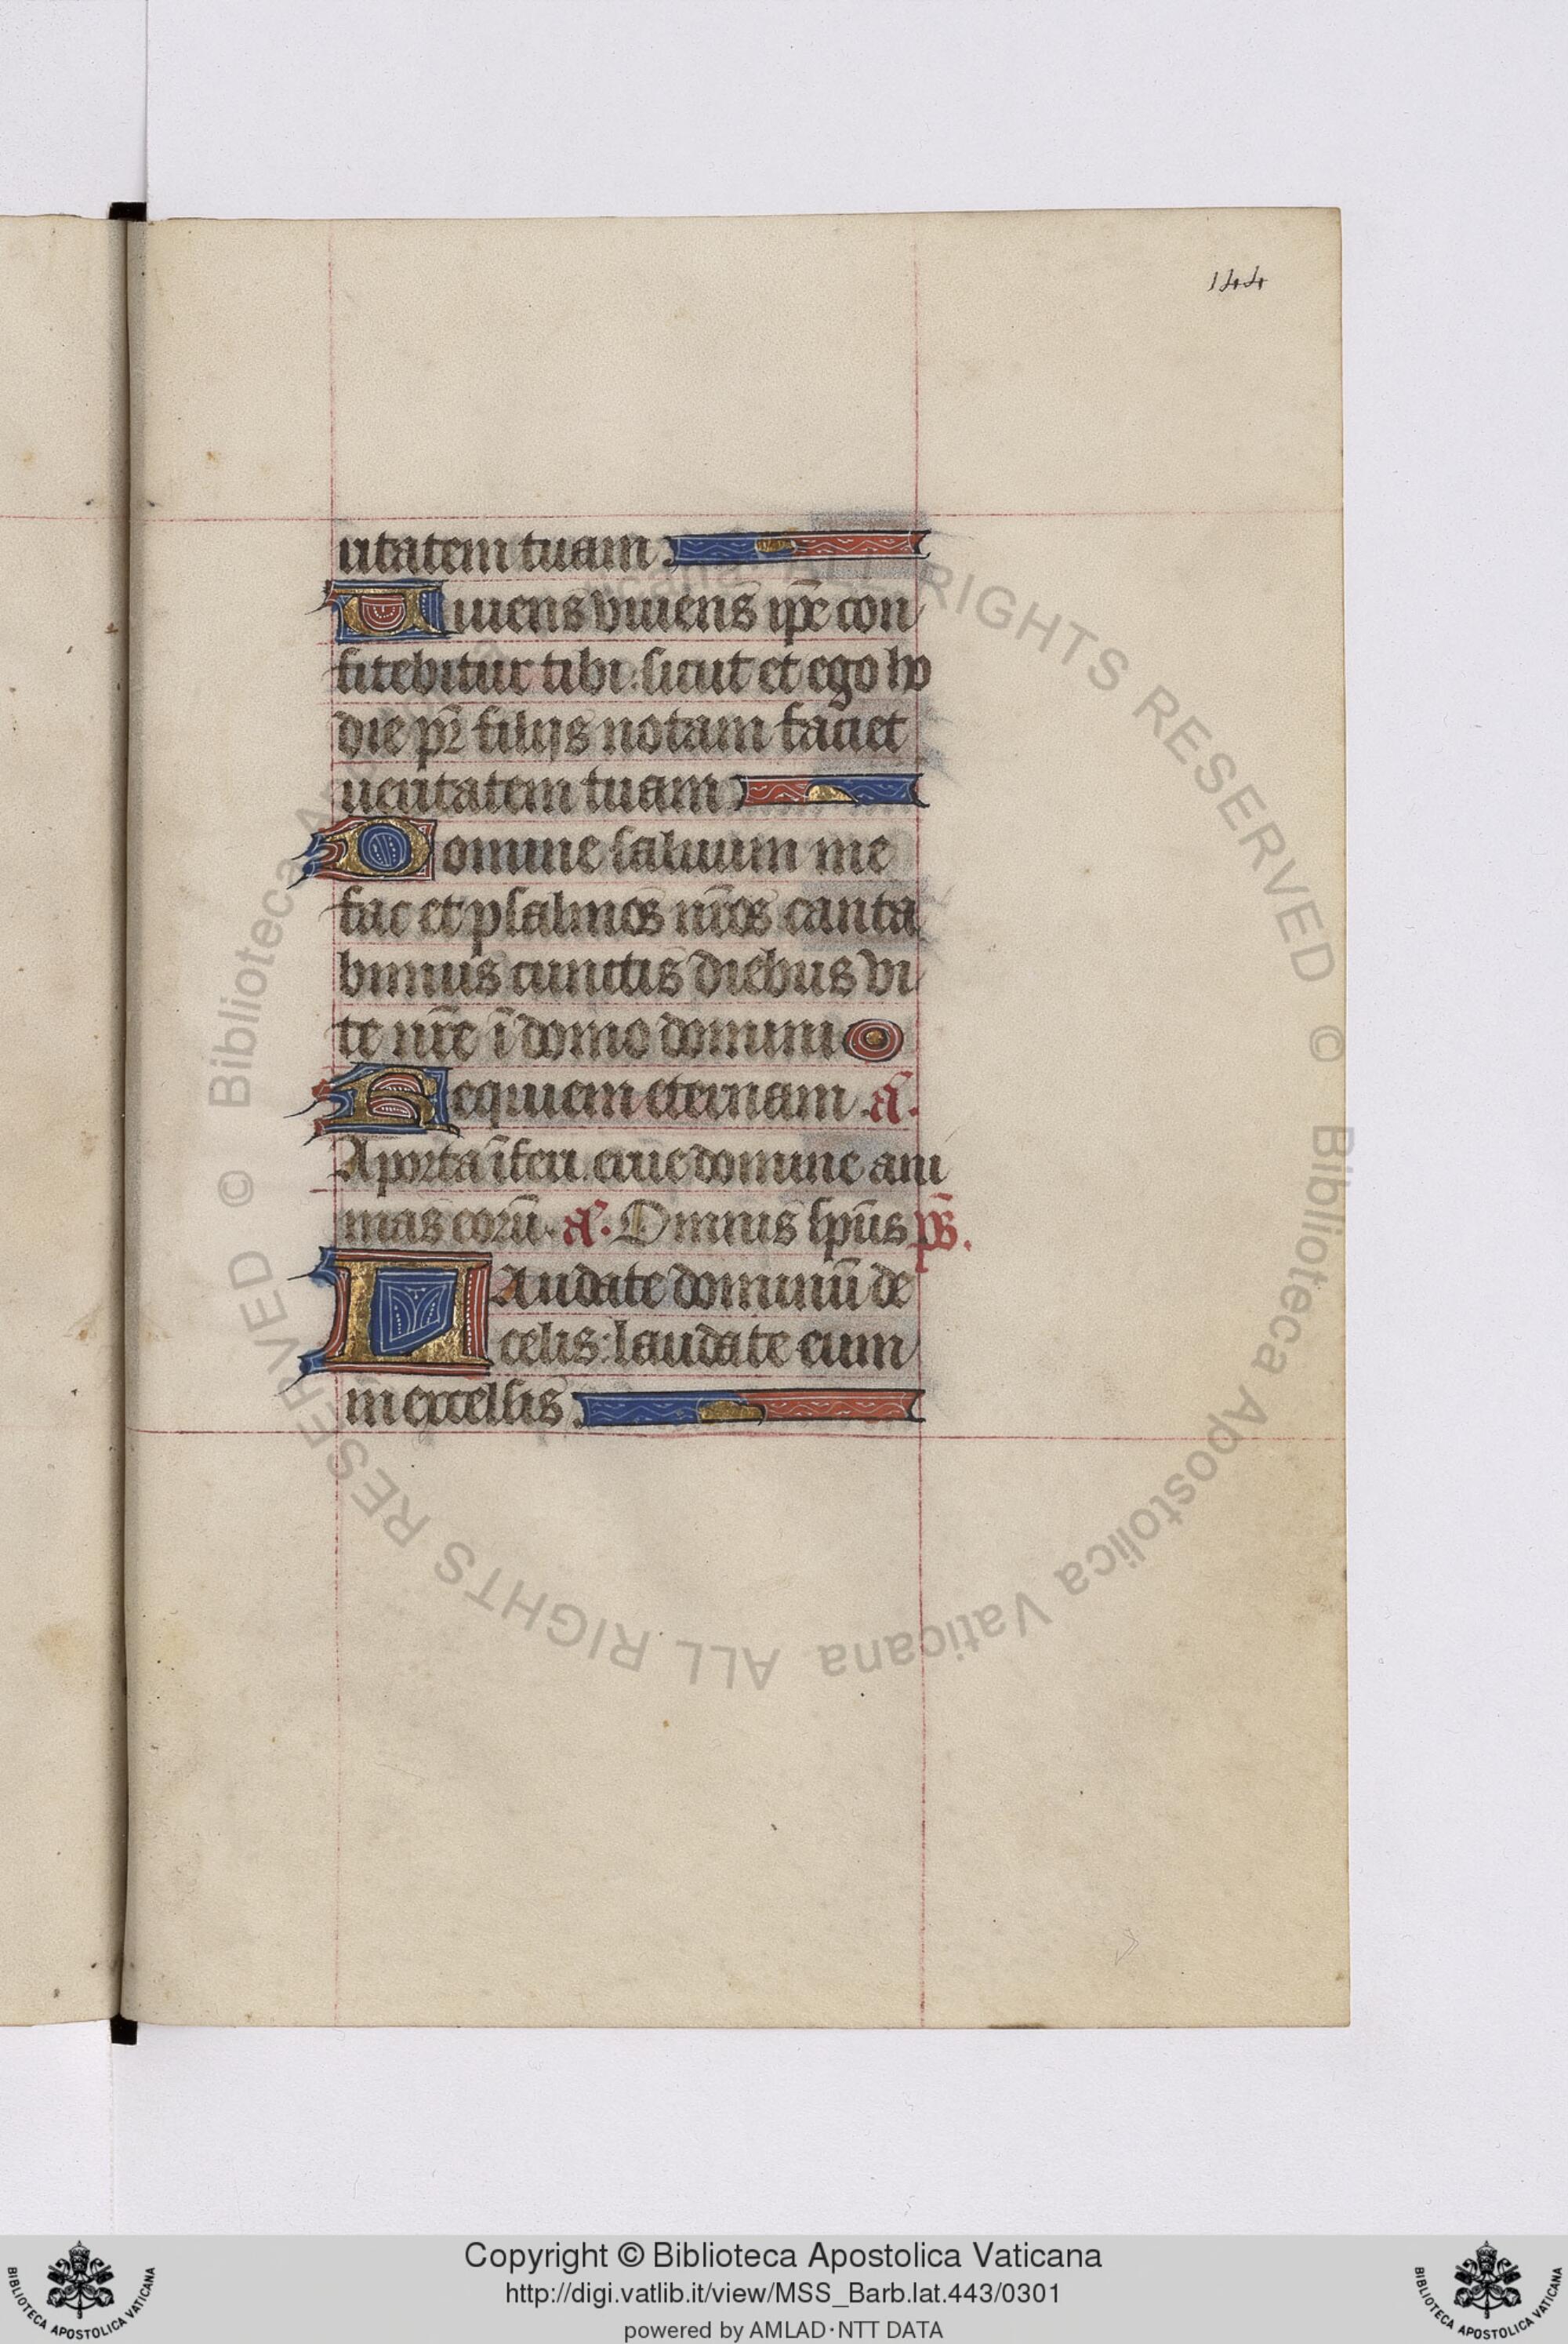 144
ritatem tuam
Uiuens viuens ip̄e con
fitebitur tibi: sicut et ego ho
die pr̄ filijs notam faciet
ueritatem tuam
Domine saluum me
fac et psalmos nr̄os canta
bimus cunctis diebus vi
te nr̄e ī domo domini
Requiem eternam. a͞.
A porta īferi. erue domine ani
mas eorū. a͞. Omnis sp̄us p̄s.
LAudate dominū de
celis: laudate eum
in excelsis.
Copyright © Biblioteca Apostolica Vaticana
http://digi.vatlib.it/view/MSS_Barb.lat.443/0301
powered by AMLAD·NTT DATA
BIBLIOTECA APOSTOLICA VATICANA
BIBLIOTECA APOSTOLICA VATICANA
© Biblioteca Apostolica Vaticana ALL RIGHTS RESERVED
© Biblioteca Apostolica Vaticana ALL RIGHTS RESERVED